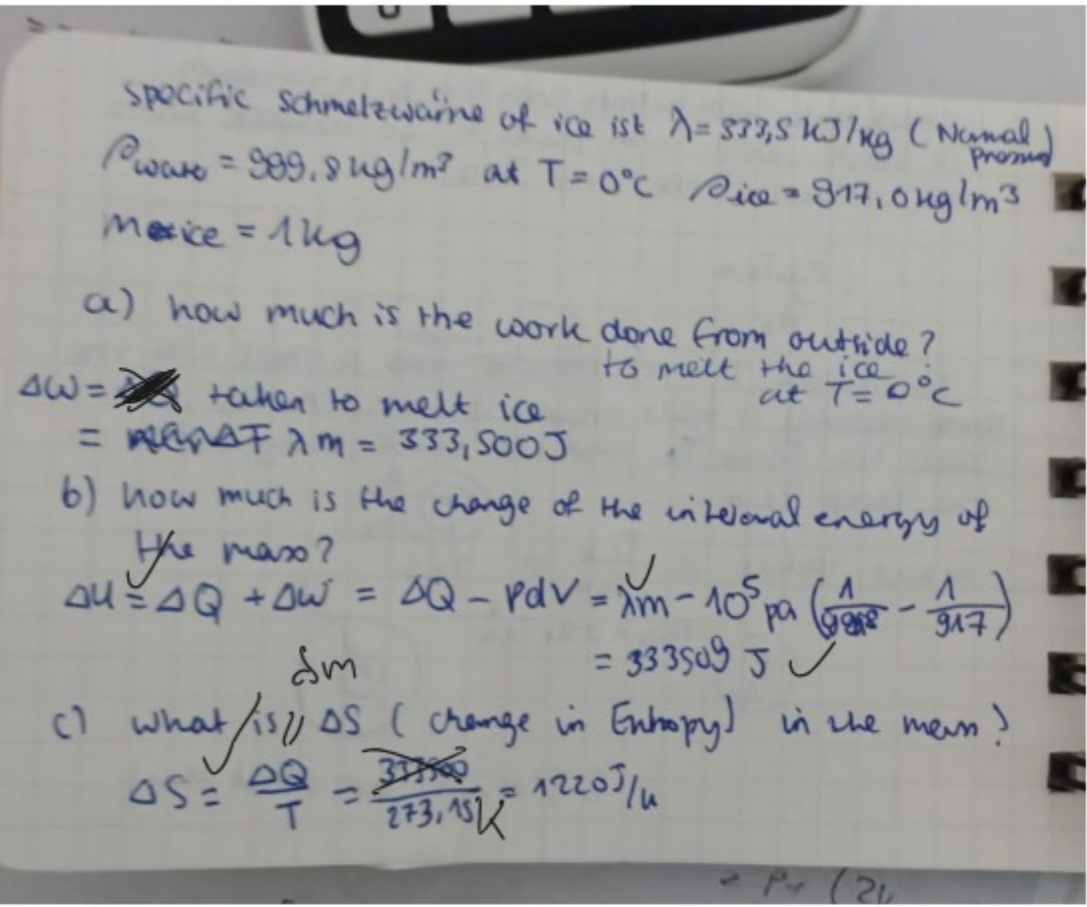 specific schmelzwärme of ice ist λ = 333,5 kJ/kg (Normal pressure)
ρwater = 999,8 kg/m³ at T = 0°C ρice = 917,0 kg/m³
mice = 1kg
a) how much is the work done from outside?
to melt the ice
at T = 0°C
ΔW = taken to melt ice
= λm = 333,500J
b) how much is the change of the internal energy of
the mass?
ΔU = ΔQ + ΔW = ΔQ - pdV = λm - 10⁵ pa (1/999,8 - 1/917)
= 333509 J ✓
λm
c) what is ΔS (change in Entropy) in the mean?
ΔS = ΔQ/T = 333500/273,15K = 1220 J/K